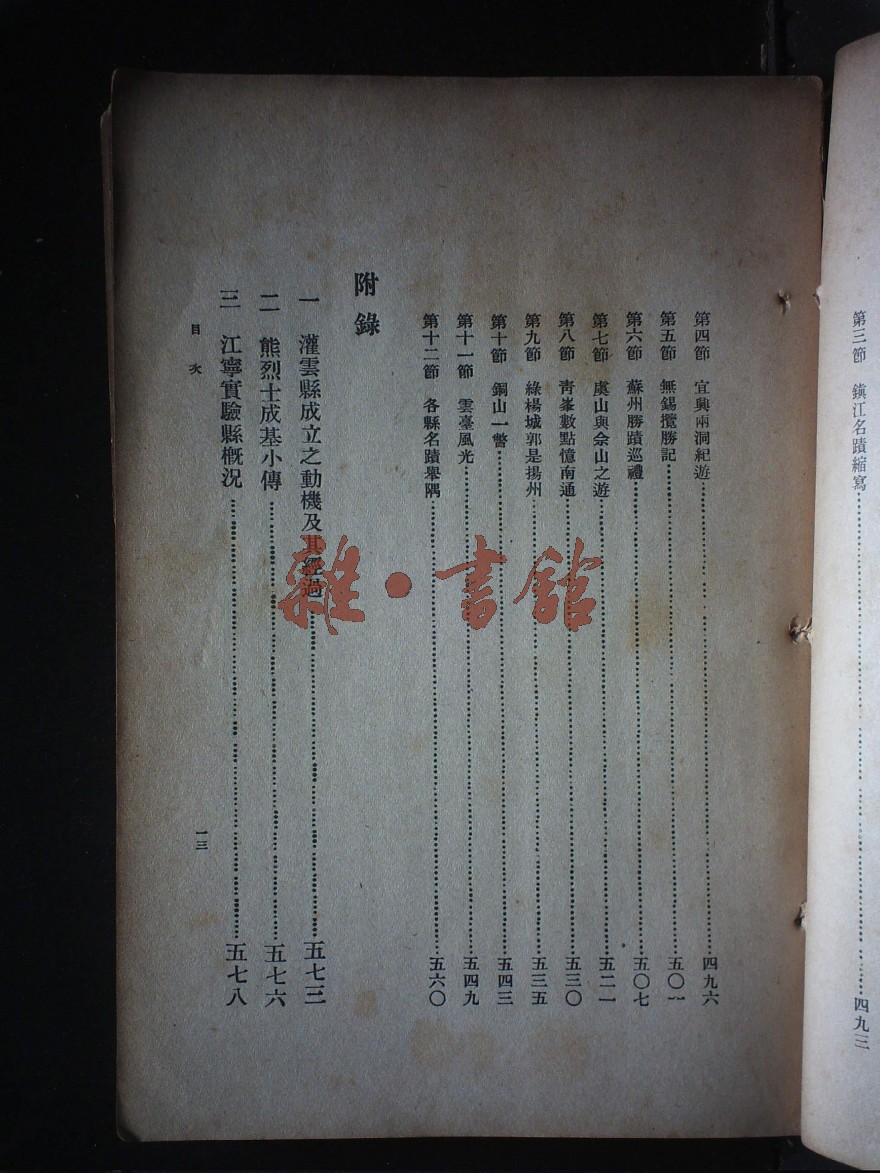 第三節　鎮江名蹟縮寫……四九三
第四節　宜興兩洞紀遊……四九六
第五節　無錫攬勝記……五〇一
第六節　蘇州勝蹟巡禮……五〇七
第七節　虞山與佘山之遊……五二一
第八節　靑峯數點憶南通……五三〇
第九節　綠楊城郭是揚州……五三五
第十節　銅山一瞥……五四三
第十一節　雲臺風光……五四九
第十二節　各縣名蹟舉隅……五六〇
附錄
一　灌雲縣成立之動機及其經過……五七三
二　熊烈士成基小傳……五七六
三　江寧實驗縣概況……五七八
目次
一三
雜·書館